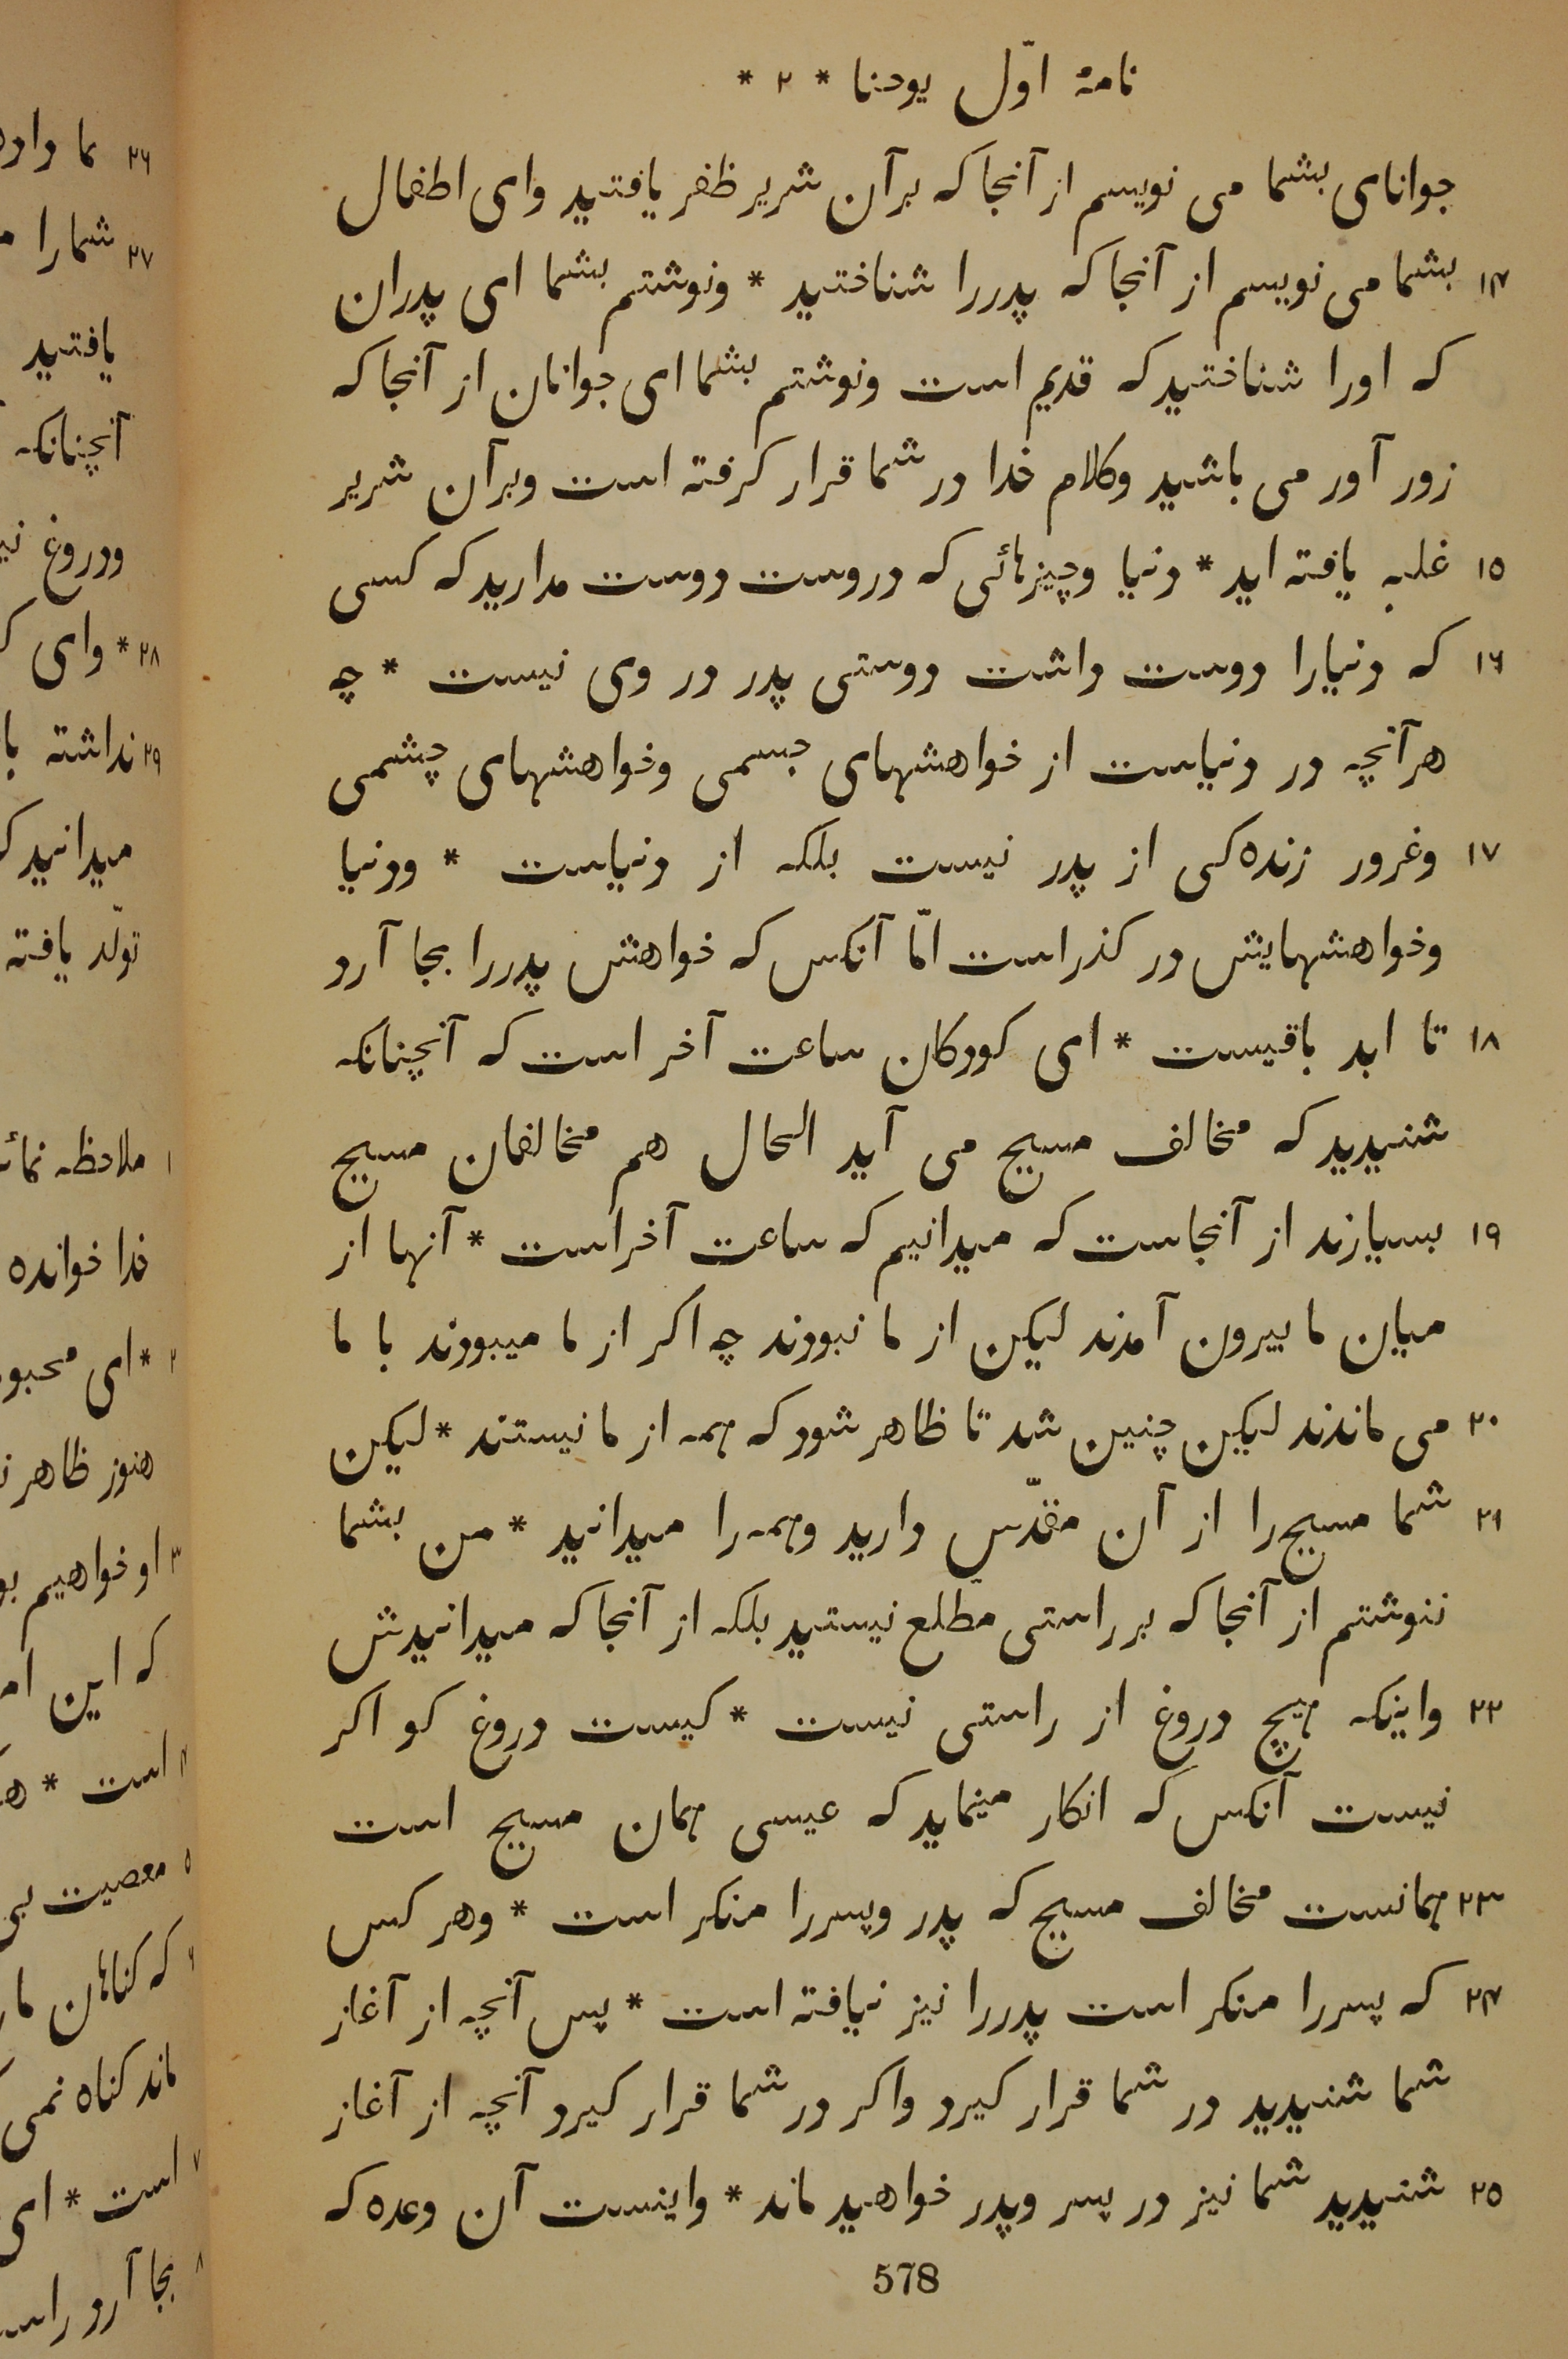 نامهٔ اوّل یوحنا * ۲ *
جوانای بشما می نویسم از آنجا که برآن شریر ظفر یافتید وای اطفال
۱۴ بشما می نویسم از آنجا که پدررا شناختید * ونوشتم بشما ای پدران
که اورا شناختید که قدیم است ونوشتم بشما ای جوانان از آنجا که
زور آور می باشید وکلام خدا در شما قرار کرفته است وبرآن شریر
۱۵ غلبه یافته اید * دنیا وچیزهائی که دروست دوست مدارید که کسی
۱۶ که دنیارا دوست داشت دوستی پدر در وی نیست * چه
هرآنچه در دنیاست از خواهشهای جسمی وخواهشهای چشمی
۱۷ وغرور زنده‌کی از پدر نیست بلکه از دنیاست * ودنیا
وخواهشهایش در کذراست امّا آنکس که خواهش پدررا بجا آرد
۱۸ تا ابد باقیست * ای کودکان ساعت آخر است که آنچنانکه
شنیدید که مخالف مسیح می آید الحال هم مخالفان مسیح
۱۹ بسیارند از آنجاست که میدانیم که ساعت آخراست * آنها از
میان ما بیرون آمدند لیکن از ما نبودند چه اکر از ما میبودند با ما
۲۰ می ماندند لیکن چنین شد تا ظاهر شود که همه از ما نیستند * لیکن
۲۱ شما مسیح را از آن مقدّس دارید وهمه را میدانید * من بشما
ننوشتم از آنجا که بر راستی مطّلع نیستید بلکه از آنجا که میدانیدش
۲۲ واینکه هیچ دروغ از راستی نیست * کیست دروغ کو اکر
نیست آنکس که انکار مینماید که عیسی همان مسیح است
۲۳ همانست مخالف مسیح که پدر وپسررا منکر است * وهر کس
۲۴ که پسررا منکر است پدررا نیز نیافته است * پس آنچه از آغاز
شما شنیدید در شما قرار کیرد واکر در شما قرار کیرد آنچه از آغاز
۲۵ شنیدید شما نیز در پسر وپدر خواهید ماند * واینست آن وعده که
578
۲۶ ما
۲۷ شمارا
یافتید
آنچنانکه
ودروغ
۲۸ * وای
۲۹ نداشته
میدانید
تولّد یافته
۱ ملاحظه
خدا خوانده
۲ * ای
هنوز ظاهر
۳ او خواهیم
که این
۴ است *
۵ معصیت
۶ که کناهان
ماند کناه
۷ است * ای
۸ بجا آرد